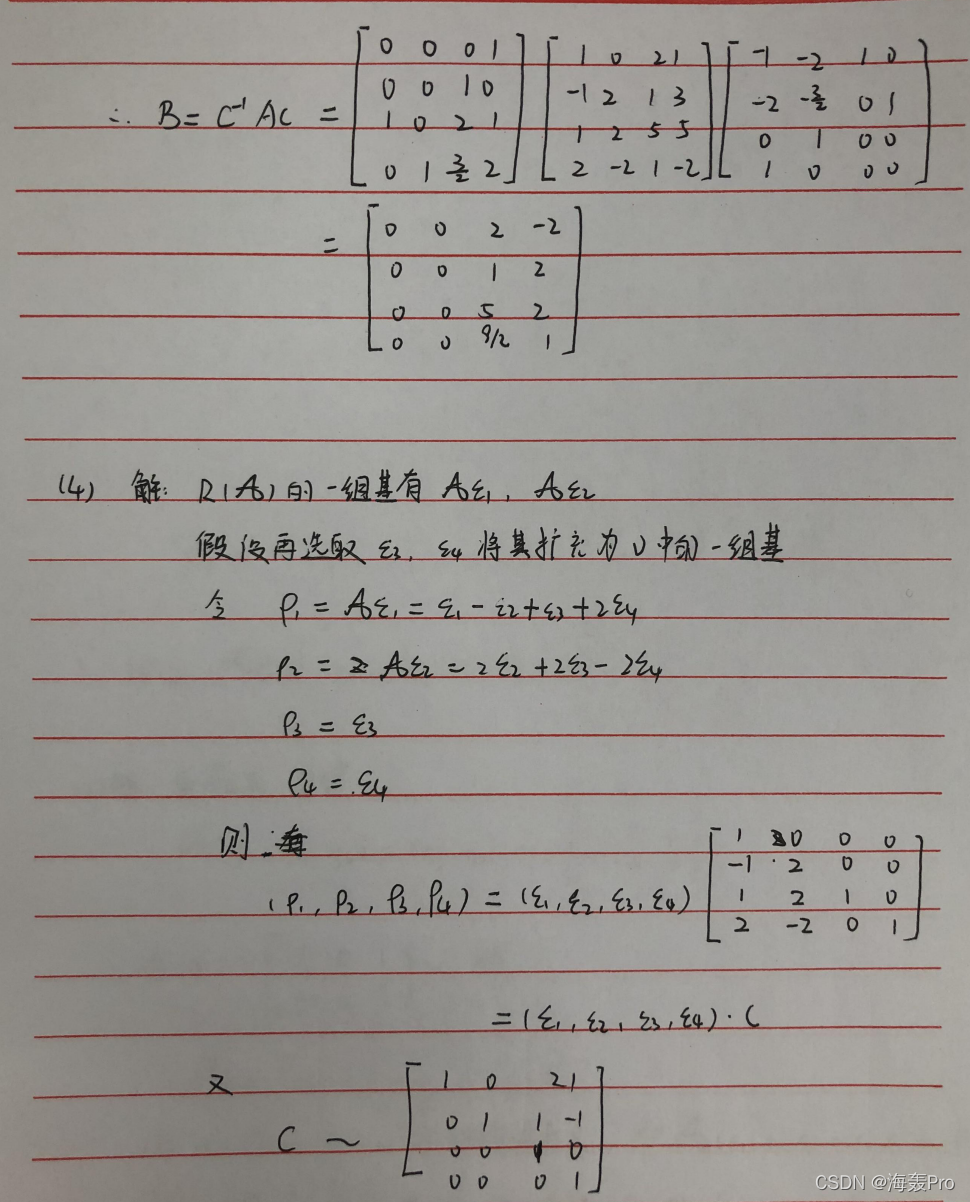 ∴ B = C⁻¹ A C = [0 0 0 1; 0 0 1 0; 1 0 2 1; 0 1 3/2 2] [1 0 2 1; -1 2 1 3; 1 2 5 5; 2 -2 1 -2] [-1 -2 1 0; -2 -3/2 0 1; 0 1 0 0; 1 0 0 0]
= [0 0 2 -2; 0 0 1 2; 0 0 5 2; 0 0 9/2 1]
(4) 解: R(A) 的一组基有 Aε₁, Aε₂
假设再选取 ε₃, ε₄ 将其扩充为 V 中的一组基
令 ρ₁ = Aε₁ = ε₁ - ε₂ + ε₃ + 2ε₄
ρ₂ = Aε₂ = 2ε₂ + 2ε₃ - 2ε₄
ρ₃ = ε₃
ρ₄ = ε₄
则
(ρ₁, ρ₂, ρ₃, ρ₄) = (ε₁, ε₂, ε₃, ε₄) [1 0 0 0; -1 2 0 0; 1 2 1 0; 2 -2 0 1]
= (ε₁, ε₂, ε₃, ε₄) · C
又
C ~ [1 0 2 1; 0 1 1 -1; 0 0 1 0; 0 0 0 1]
CSDN @海轰Pro